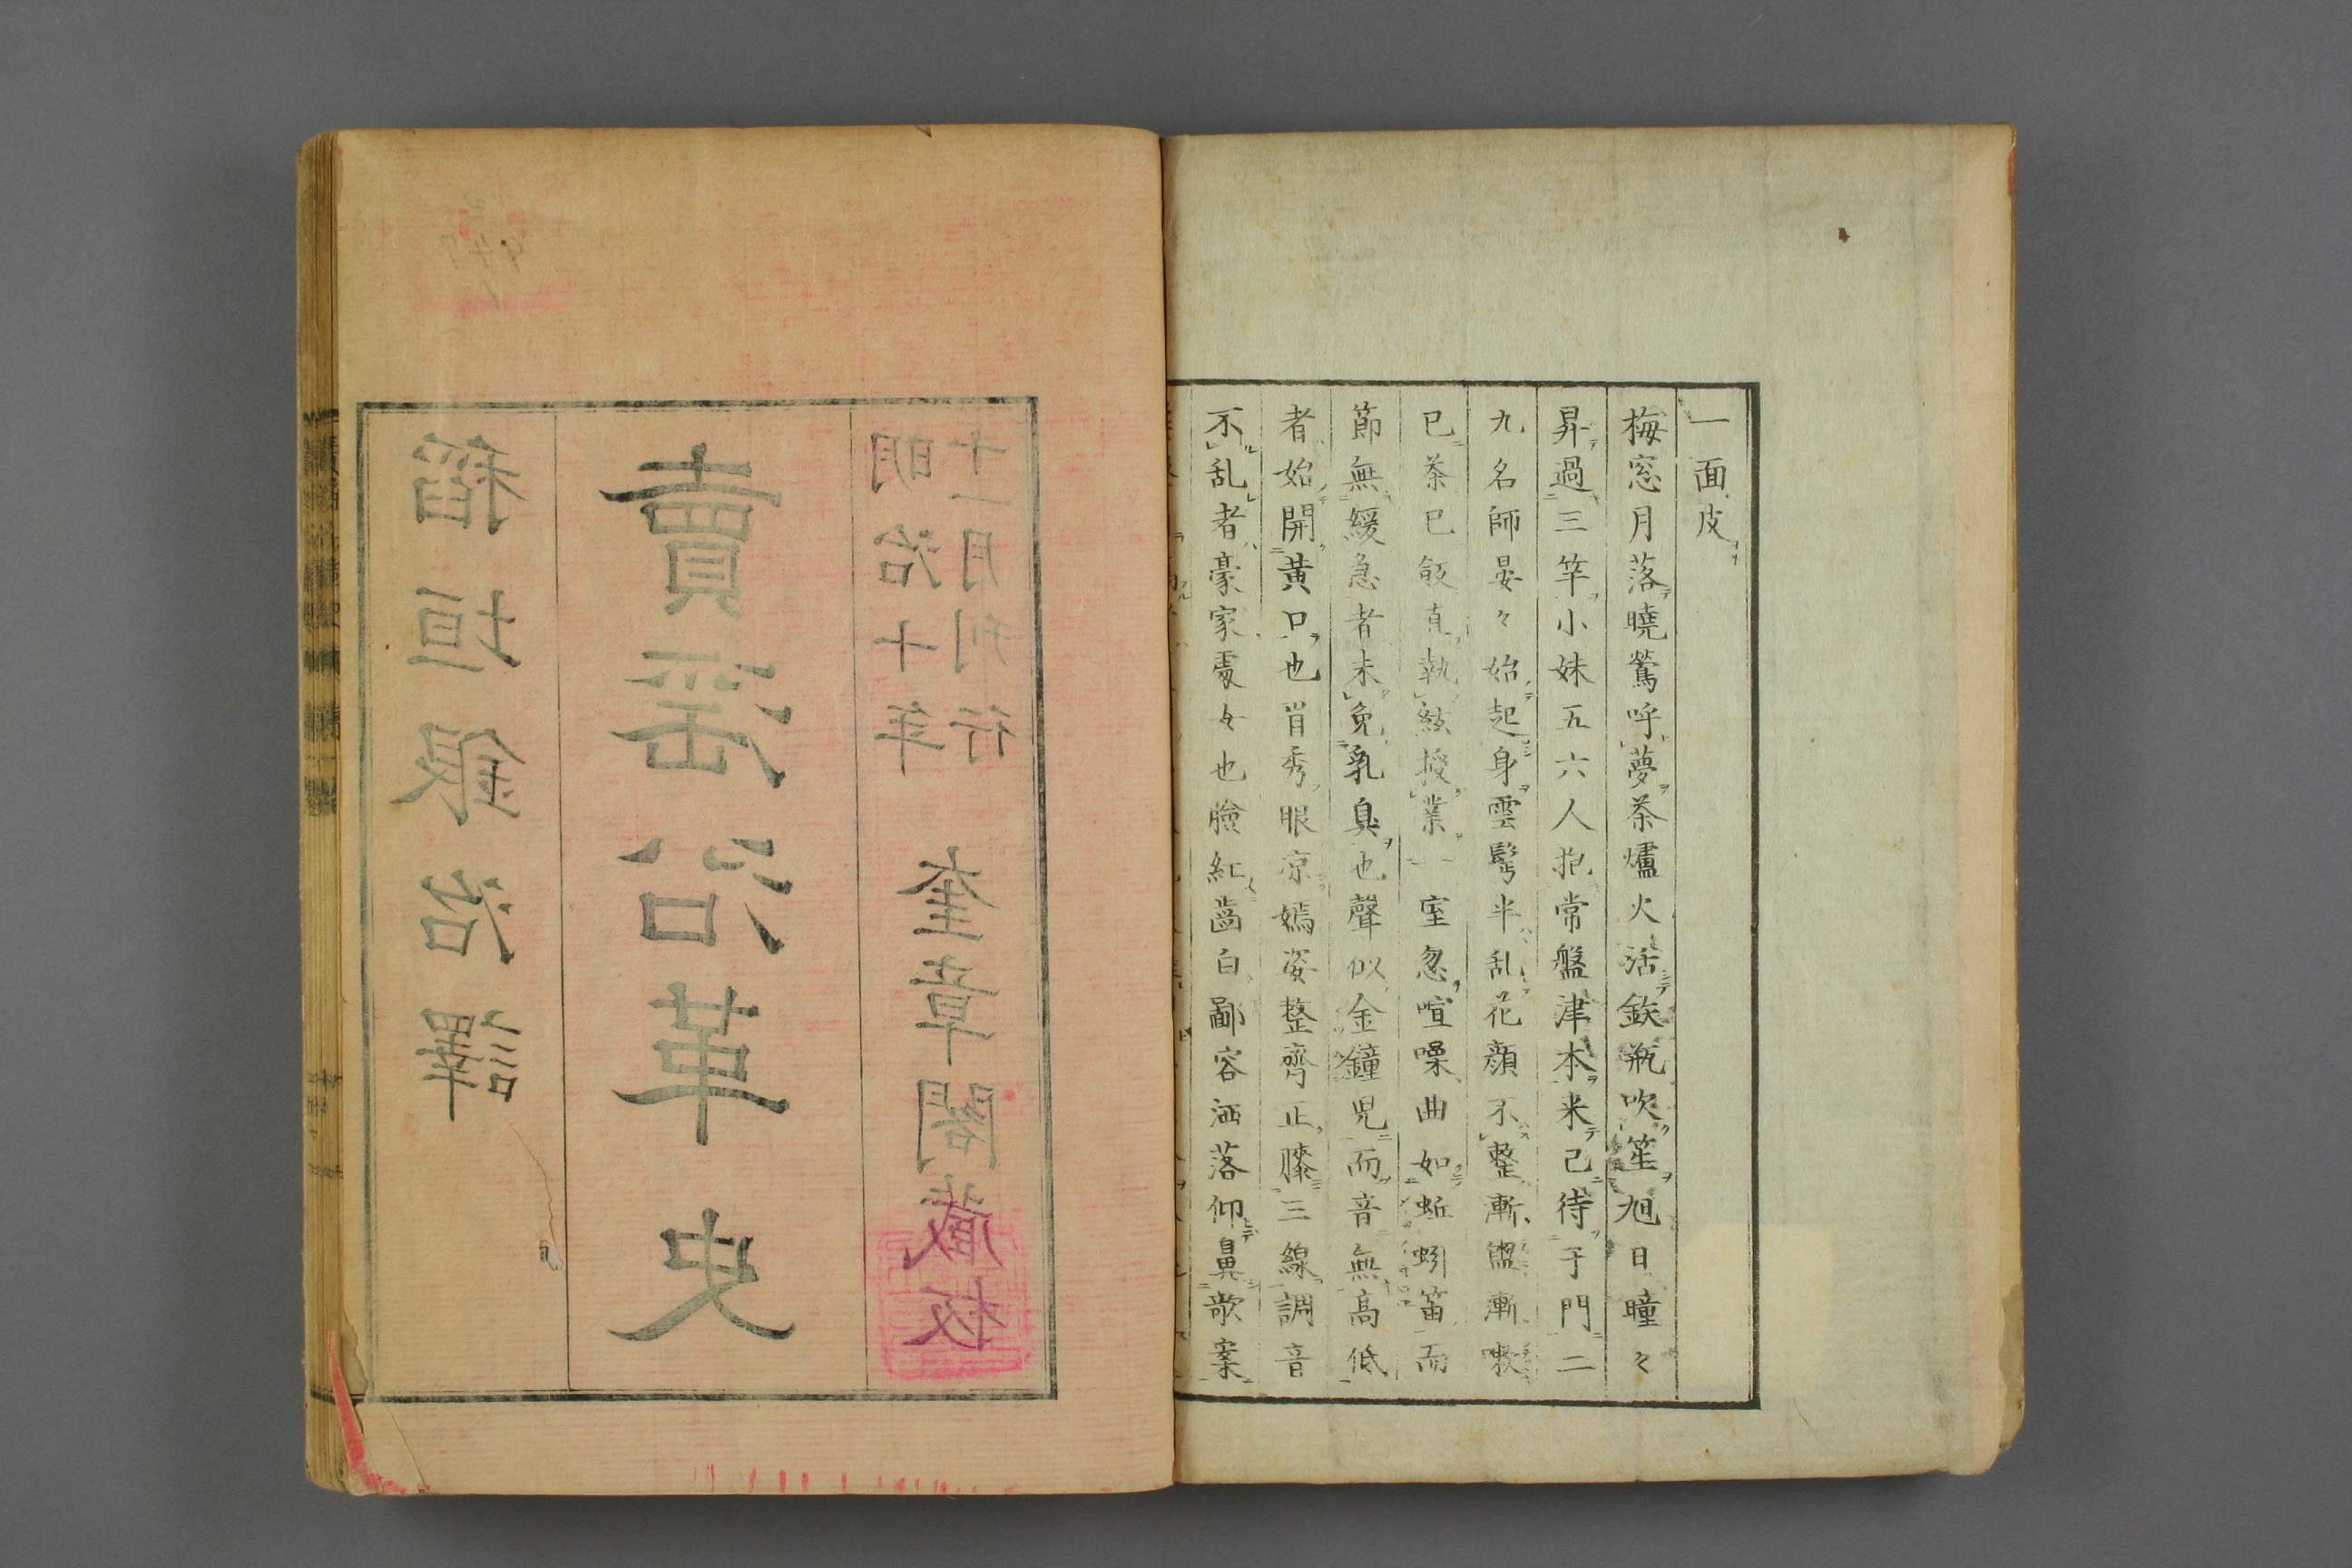 一面皮
梅窓月落曉鶯呼夢茶爐火活鉄瓶吹笙旭日曈々
昇過三竿小妹五六人抱常盤津本来己待于門二
九名師晏々始起身雲髩半乱花顔不整漸盥漸嗽
已茶已飯直執絃授業一室忽喧噪曲如蚯蚓笛而
節無緩急者未免乳臭也聲似金鐘児而音無高低
者始開黄口也肖秀眼凉嫣姿整齊正膝三線調音
不乱者豪家處女也臉紅齒白鄙容洒落仰鼻歌案
明治十年
十一月刊行
奎章閣藏板
賣淫沿革史
稻垣銀治譯